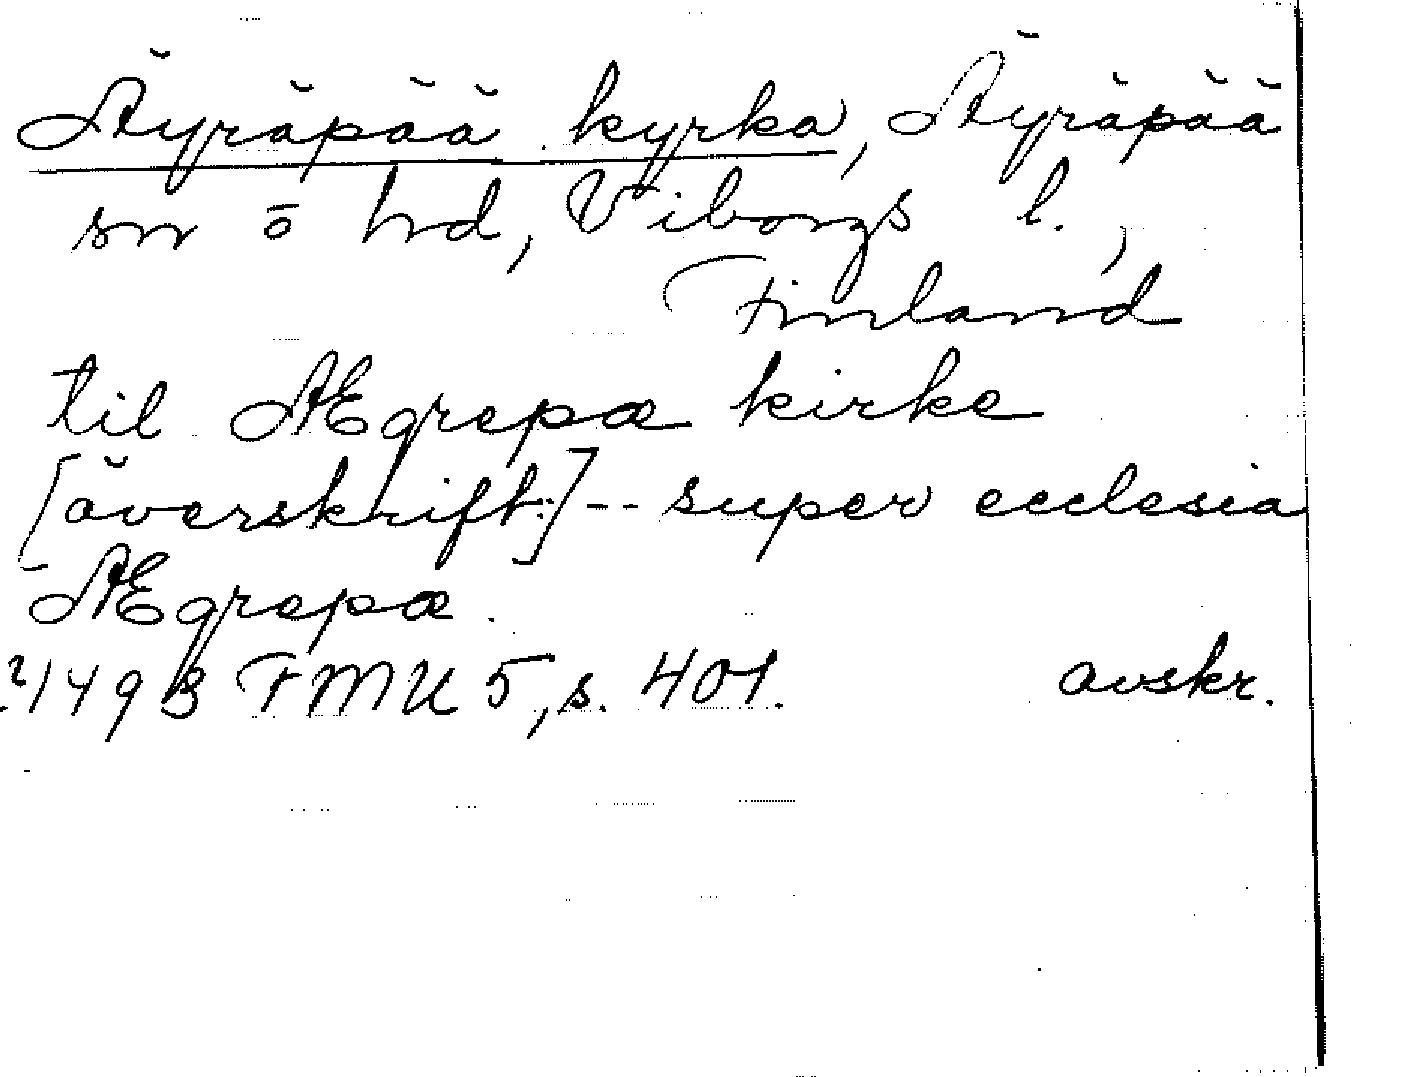 Äyräpää kyrka, Äyräpää
sn o hd, Viborgs l.,
Finland
til Ægrepæ kirke
[överskrift:]-- super ecclesia
Ægrepæ.
1493 FMU 5, s. 401. avskr.